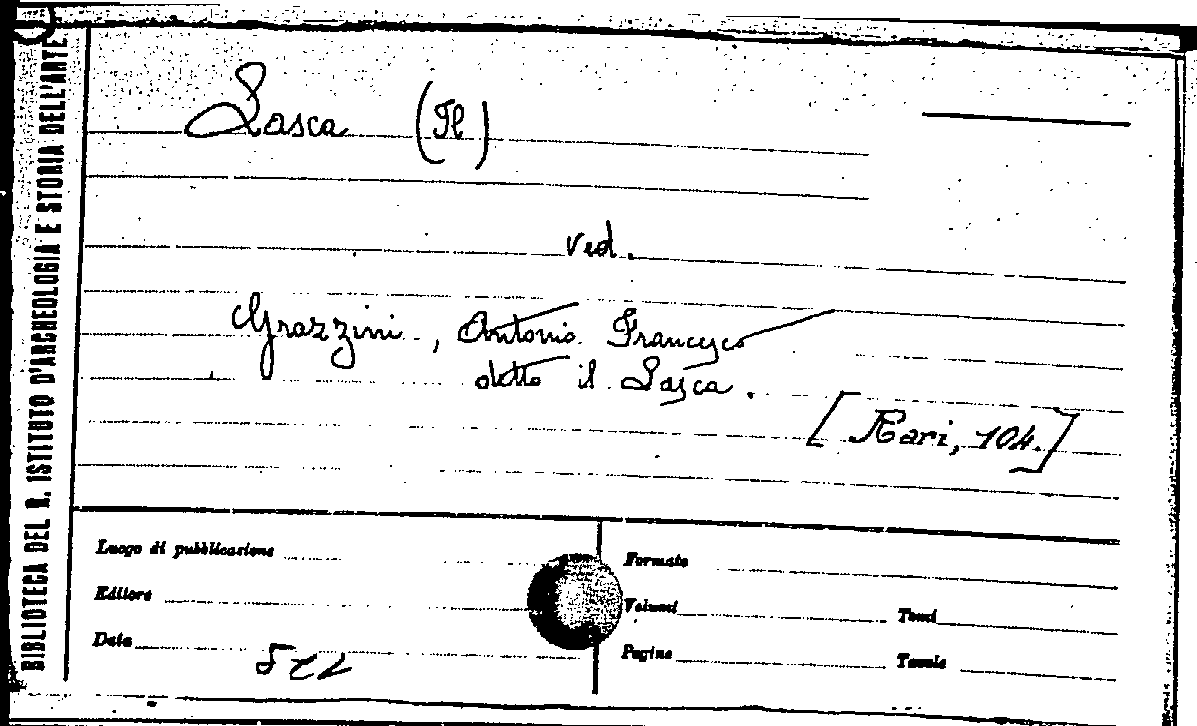 BIBLIOTECA DEL R. ISTITUTO D'ARCHEOLOGIA E STORIA DELL'ARTE
Lasca (Il)
ved.
Grazzini, Antonio Francesco
detto il Lasca.
[Rari, 104.]
Luogo di pubblicazione
Formato
Editore
Volumi
Tomi
Data
Pagine
Tavole